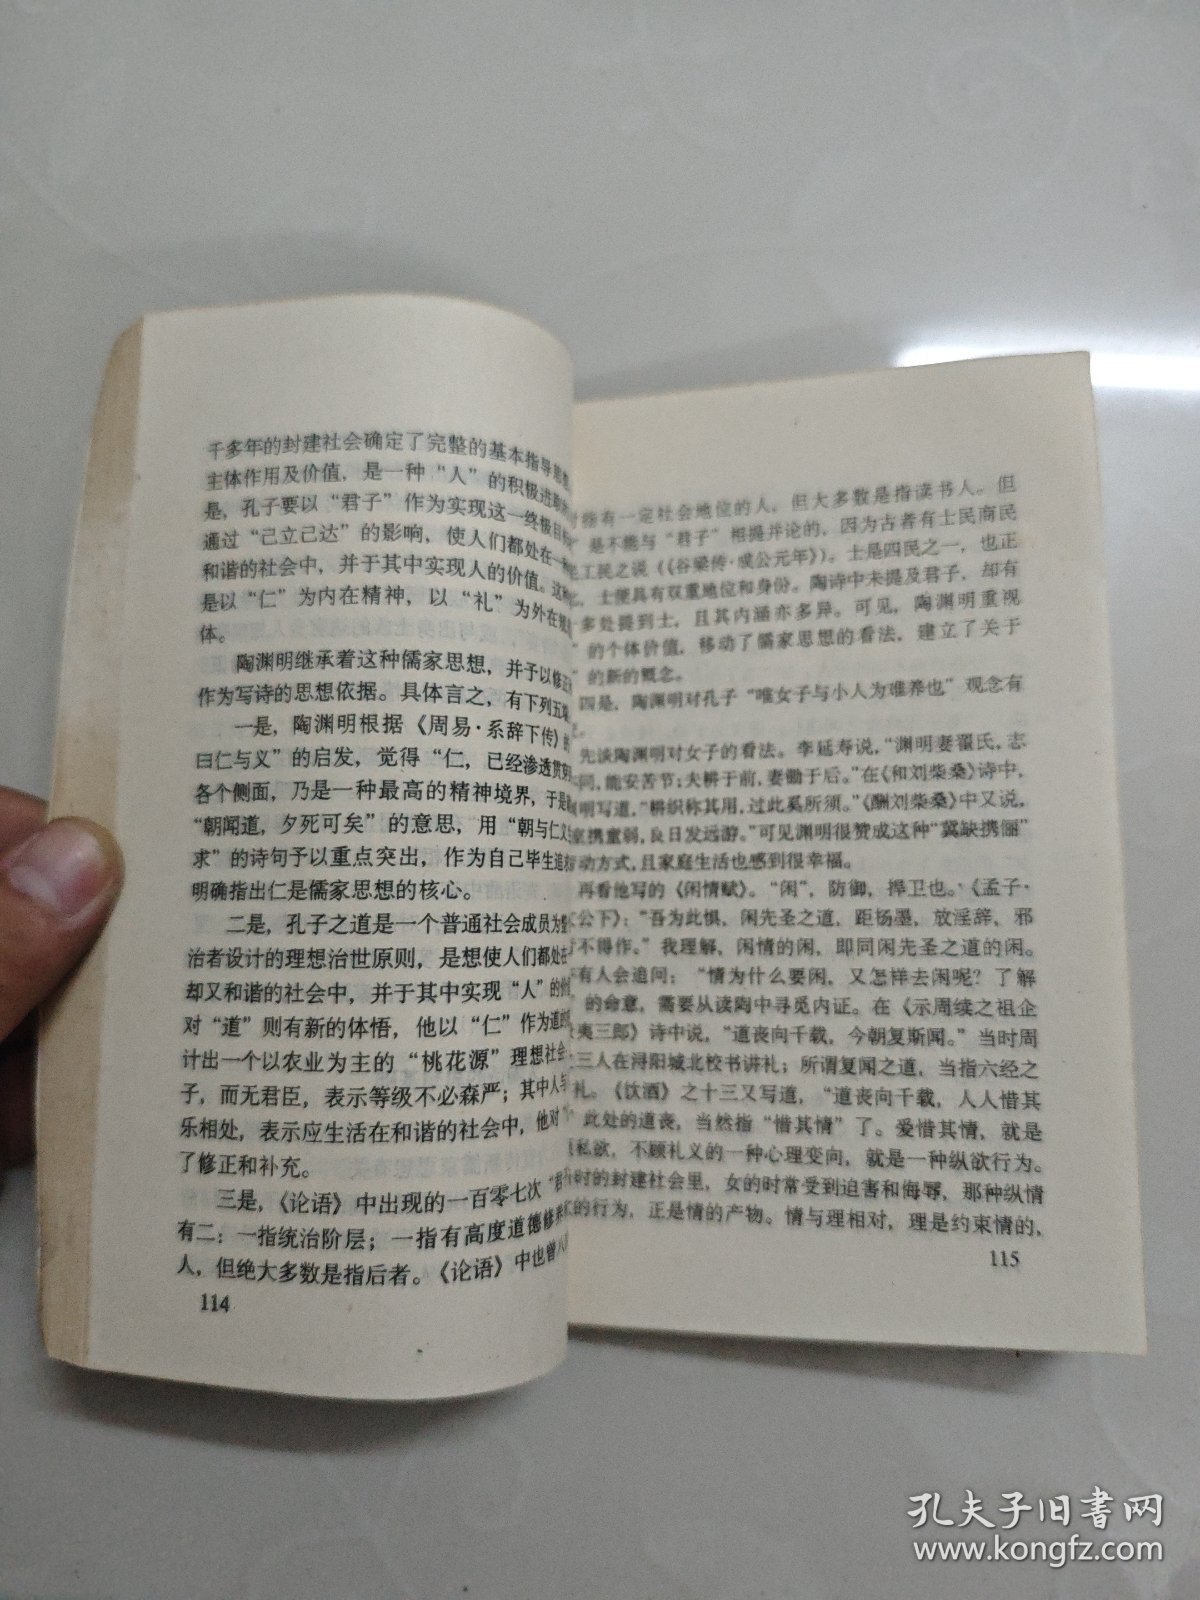 千多年的封建社会确定了完整的基本指导思想
主体作用及价值，是一种“人”的积极进取
是，孔子要以“君子”作为实现这一终极目
通过“己立己达”的影响，使人们都处在一
和谐的社会中，并于其中实现人的价值。这
是以“仁”为内在精神，以“礼”为外在
体。
陶渊明继承着这种儒家思想，并予以修正
作为写诗的思想依据。具体言之，有下列五
一是，陶渊明根据《周易·系辞下传》
曰仁与义”的启发，觉得“仁，已经渗透贯
各个侧面，乃是一种最高的精神境界，于是
“朝闻道，夕死可矣”的意思，用“朝与仁义
求”的诗句予以重点突出，作为自己毕生追
明确指出仁是儒家思想的核心。
二是，孔子之道是一个普通社会成员为
治者设计的理想治世原则，是想使人们都处在
却又和谐的社会中，并于其中实现“人”的价
对“道”则有新的体悟，他以“仁”作为道
计出一个以农业为主的“桃花源”理想社会
子，而无君臣，表示等级不必森严；其中人与
乐相处，表示应生活在和谐的社会中，他对
了修正和补充。
三是，《论语》中出现的一百零七次“君
有二：一指统治阶层；一指有高度道德修养
人，但绝大多数是指后者。《论语》中也曾八
114
有一定社会地位的人，但大多数是指读书人。但
是不能与“君子”相提并论的，因为古者有士民商民
工民之说（《谷梁传·成公元年》）。士是四民之一，也正
士便具有双重地位和身份。陶诗中未提及君子，却有
多处提到士，且其内涵亦多异。可见，陶渊明重视
的个体价值，移动了儒家思想的看法，建立了关于
的新的概念。
四是，陶渊明对孔子“唯女子与小人为难养也”观念有
先谈陶渊明对女子的看法。李延寿说，“渊明妻翟氏，志
同，能安苦节；夫耕于前，妻锄于后。”在《和刘柴桑》诗中，
明写道，“耕织称其用，过此奚所须。”《酬刘柴桑》中又说，
室携童弱，良日发远游。”可见渊明很赞成这种“冀缺携俪”
动方式，且家庭生活也感到很幸福。
再看他写的《闲情赋》。“闲”，防御，捍卫也。《孟子·
公下》：“吾为此惧，闲先圣之道，距杨墨，放淫辞，邪
不得作。”我理解，闲情的闲，即同闲先圣之道的闲。
有人会追问：“情为什么要闲，又怎样去闲呢？了解
的命意，需要从读陶中寻觅内证。在《示周续之祖企
夷三郎》诗中说，“道丧向千载，今朝复斯闻。”当时周
三人在浔阳城北校书讲礼；所谓复闻之道，当指六经之
礼。《饮酒》之十三又写道，“道丧向千载，人人惜其
此处的道丧，当然指“惜其情”了。爱惜其情，就是
私欲，不顾礼义的一种心理变向，就是一种纵欲行为。
时的封建社会里，女的时常受到迫害和侮辱，那种纵情
的行为，正是情的产物。情与理相对，理是约束情的，
115
孔夫子旧书网
www.kongfz.com